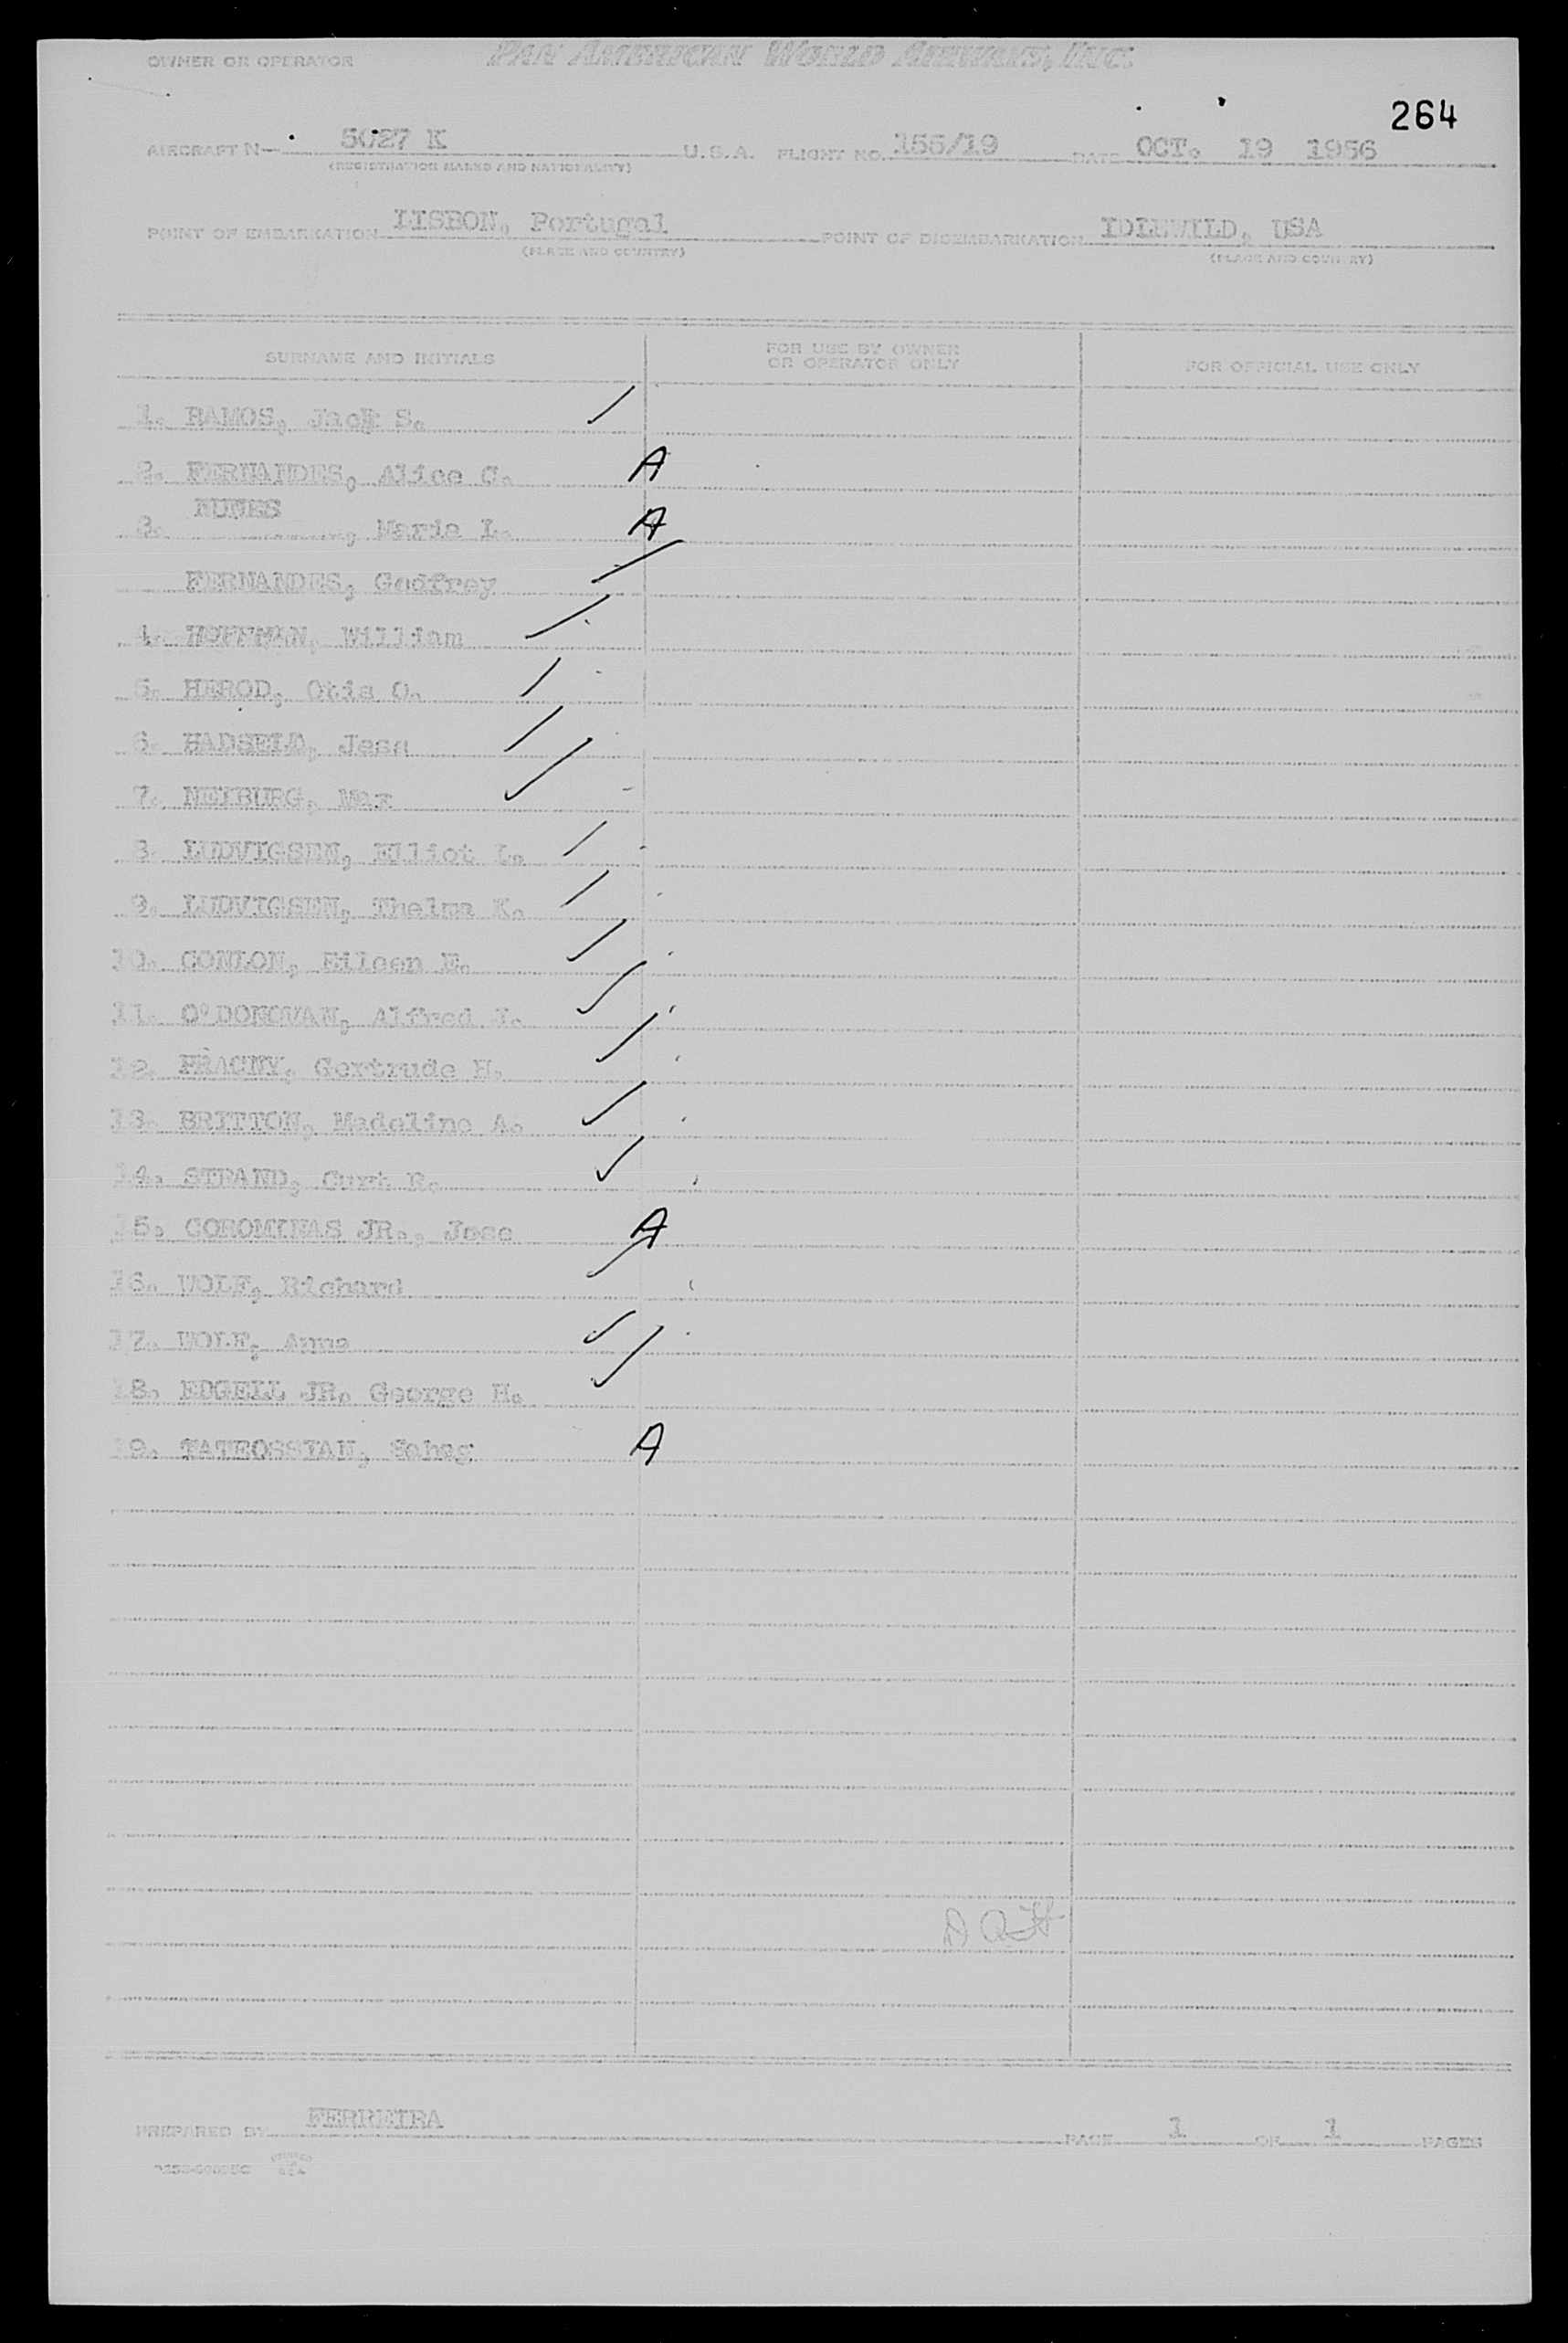 OWNER OR OPERATOR PAN AMERICAN WORLD AIRWAYS, INC.
264
AIRCRAFT N- 5027 K U.S.A. FLIGHT NO. 155/19 DATE OCT. 19 1956
(REGISTRATION MARKS AND NATIONALITY)
POINT OF EMBARKATION LISBON, Portugal POINT OF DISEMBARKATION IDLEWILD, USA
(PLACE AND COUNTRY) (PLACE AND COUNTRY)
SURNAME AND INITIALS FOR USE BY OWNER OR OPERATOR ONLY FOR OFFICIAL USE ONLY
1. RAMOS, Jack S.
2. FERNANDES, Alice C. A
NUNES
3. , Maria L. A
FERNANDES, Godfrey
4. HOFFMAN, William
5. HEROD, Otis O.
6. Jean
7. NEIBURG, Max
8. LUDVIGSEN, Elliot L.
9. LUDVIGSEN, Thelma K.
10. CONLON, Eileen E.
11. O'DONOVAN, Alfred
12. Gertrude H.
13. BRITTON, Madeline A.
14. STRAND, Curt R.
15. COROMINAS JR., Jose A
16. WOLF, Richard
17. WOLF, Anna
18. EDGELL JR. George H.
19. TATEOSSIAN, Sahag A
PREPARED BY FERREIRA PAGE 1 OF 1 PAGES
PRINTED IN U.S.A.